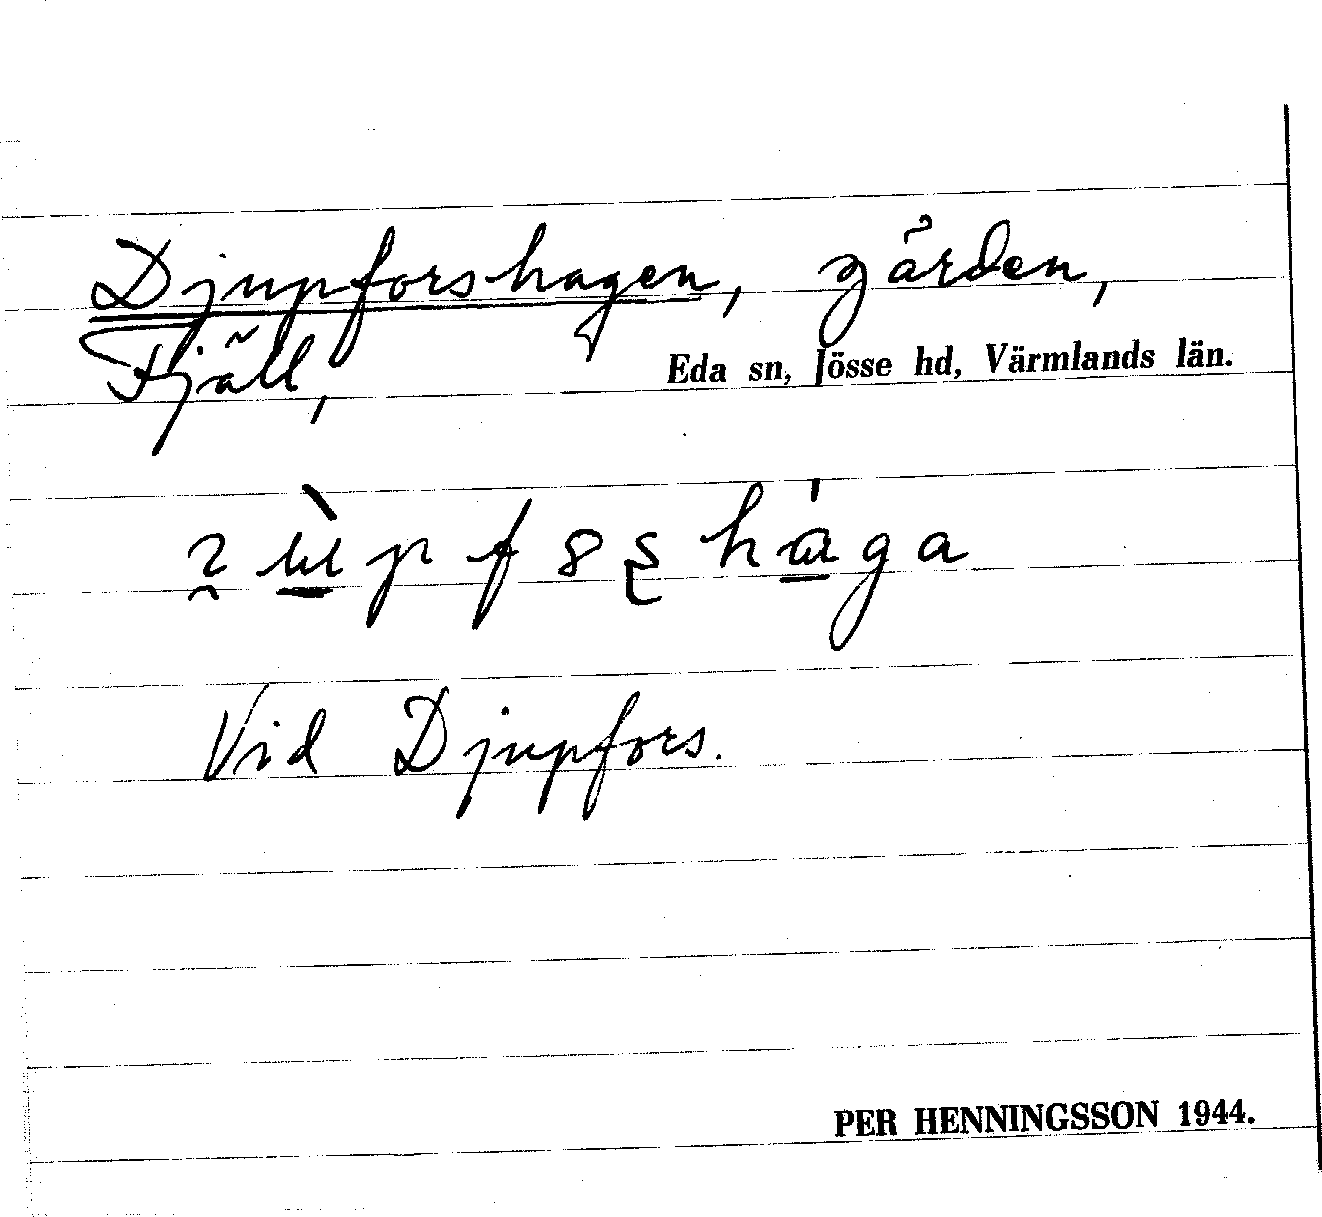 Djupforshagen, gärden,
Fjäll, Eda sn, Jösse hd, Värmlands län.
Vid Djupfors.
PER HENNINGSSON 1944.